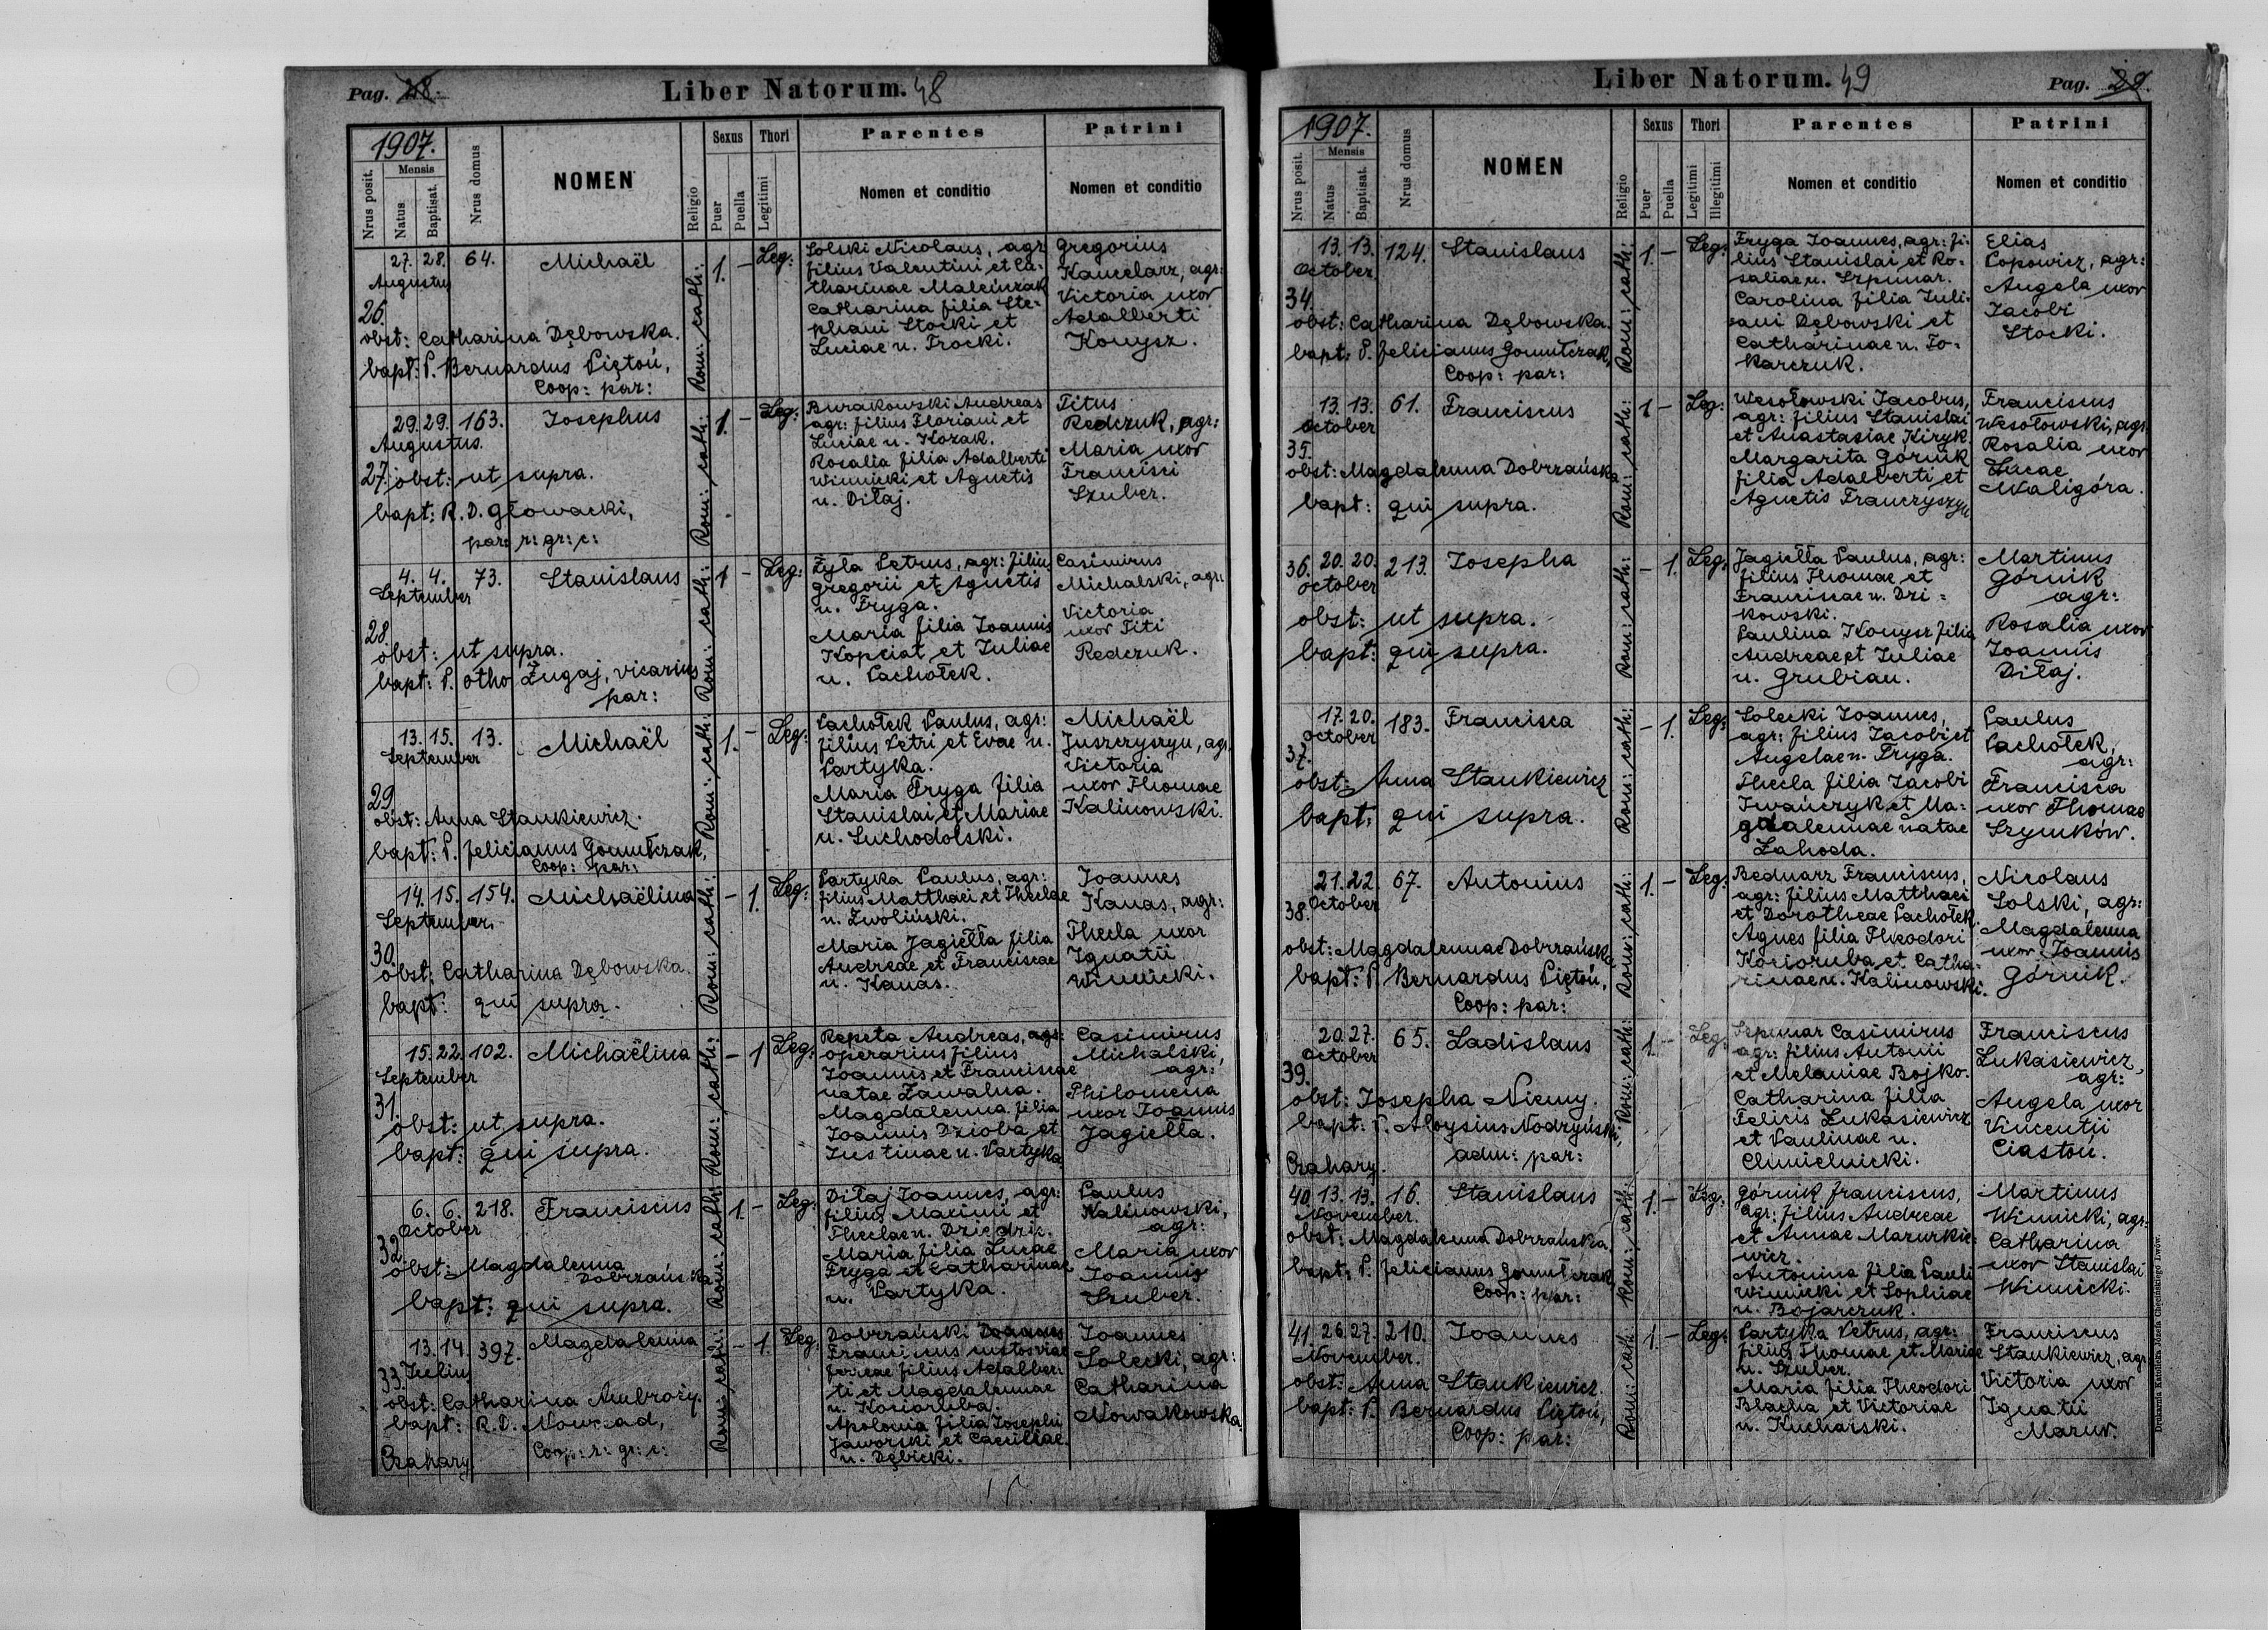 Pag. 28.
Liber Natorum. 48
1907.
Nrus posit.
Mensis
Natus
Baptisat.
Nrus domus
NOMEN
Religio
Sexus
Puer
Puella
Thori
Legitimi
Parentes
Nomen et conditio
Patrini
Nomen et conditio
27. 28. 64. Michaël
Augustus
26.
obst: Catharina Dębowska.
bapt: P. Bernardus Piętoń,
Coop: par:
Rom: cath:
1. - Leg:
Solski Nicolaus, agr:
filius Valentini et Ca-
tharinae Maleńczak
Catharina filia Ste-
phani Stocki et
Luciae n. Trocki.
Gregorius
Kancelarz, agr:
Victoria uxor
Adalberti
Konysz.
29. 29. 163. Josephus
Augustus.
27. obst: ut supra.
bapt: R. D. Głowacki,
par: r: gr: c:
Rom: cath:
1. - Leg:
Burakowski Andreas
agr: filius Floriani et
Luciae n. Kozak.
Rosalia filia Adalberti
Winnicki et Agnetis
n. Diłaj.
Titus
Redczuk, agr:
Maria uxor
Francisci
Szuber.
4. 4. 73. Stanislaus
September
28.
obst: ut supra.
bapt: P. Otho Żugaj, vicarius
par:
Rom: cath:
1 - Leg:
Żyła Petrus, agr: filius
Gregorii et Agnetis
n. Fryga.
Maria filia Joannis
Kopciat et Juliae
n. Pachołek.
Casimirus
Michalski, agr:
Victoria
uxor Titi
Redczuk.
13. 15. 13. Michaël
September
29
obst: Anna Stankiewicz.
bapt: P. Felicianus Gomułczak,
Coop: par:
Rom: cath:
1. - Leg:
Pachołek Paulus, agr:
filius Petri et Evae n.
Partyka.
Maria Fryga filia
Stanislai et Mariae
n. Suchodolski.
Michaël
Juszczyszyn, agr.
Victoria
uxor Thomae
Kalinowski.
14. 15. 154. Michaëlina
September.
30.
obst: Catharina Dębowska.
bapt: qui supra.
Rom: cath:
- 1. Leg:
Partyka Paulus, agr:
filius Matthaei et Theclae
n. Zwoliński.
Maria Jagiełła filia
Andreae et Franciscae
n. Kanas.
Joannes
Kanas, agr:
Thecla uxor
Ignatii
Winnicki.
15. 22. 102. Michaëlina
September
31.
obst: ut supra.
bapt: qui supra.
Rom: cath:
- 1 Leg:
Repeta Andreas, agr:
operarius filius
Joannis et Franciscae
natae Zawalna.
Magdalenna filia
Joannis Dzioba et
Justinae n. Partyka
Casimirus
Michalski,
agr:
Philomena
uxor Joannis
Jagiełła.
6. 6. 218. Franciscus
October
32.
obst: Magdalenna
Dobrzańska
bapt: qui supra.
Rom: cath:
1. - Leg:
Diłaj Joannes, agr:
filius Maximi et
Theclae n. Dziedzic.
Maria filia Lucae
Fryga et Catharinae
n. Partyka.
Paulus
Kalinowski,
agr:
Maria uxor
Joannis
Szuber.
13. 14. 397. Magdalenna
Julius
33.
obst: Catharina Ambroży.
bapt: R. D. Nowosad,
Coop: r: gr: c:
Czahary
Rom: cath:
- 1. Leg:
Dobrzański Joannes
Franciscus custos viae
ferreae filius Adalber-
ti et Magdalennae
n. Kocioruba.
Apolonia filia Josephi
Jaworski et Caeciliae
n. Dębicki.
Joannes
Solecki, agr:
Catharina
Nowakowska.
Liber Natorum. 49
Pag. 29.
1907.
Nrus posit.
Mensis
Natus
Baptisat.
Nrus domus
NOMEN
Religio
Sexus
Puer
Puella
Thori
Legitimi
Illegitimi
Parentes
Nomen et conditio
Patrini
Nomen et conditio
13. 13. 124. Stanislaus
October
34.
obst: Catharina Dębowska.
bapt: P. Felicianus Gomułczak,
Coop: par:
Rom: cath:
1. - Leg:
Fryga Joannes, agr: fi-
lius Stanislai et Ro-
saliae n. Szpunar.
Carolina filia Juli-
ani Dębowski et
Catharinae n. To-
karczuk.
Elias
Popowicz, agr:
Angela uxor
Jacobi
Stocki.
13. 13. 61. Franciscus
October
35.
obst: Magdalenna Dobrzańska
bapt: qui supra.
Rom: cath:
1 - Leg:
Wesołowski Jacobus,
agr: filius Stanislai
et Anastasiae Kiryk.
Margarita Górnik
filia Adalberti et
Agnetis Franczyszyn
Franciscus
Wesołowski, agr.
Rosalia uxor
Lucae
Kaligóra.
36. 20. 20. 213. Josepha
October
obst: ut supra.
bapt: qui supra.
Rom: cath:
- 1. Leg:
Jagiełła Paulus, agr:
filius Thomae et
Franciscae n. Dzi-
kowski.
Paulina Konysz filia
Andreae et Juliae
n. Grubian.
Martinus
Górnik
agr:
Rosalia uxor
Joannis
Diłaj.
17. 20. 183. Francisca
October
37.
obst: Anna Stankiewicz
bapt: qui supra.
Rom: cath:
- 1. Leg:
Solecki Joannes,
agr: filius Jacobi et
Angelae n. Fryga.
Thecla filia Jacobi
Iwańczyk et Ma-
gdalennae natae
Łahoda.
Paulus
Pachołek,
agr:
Francisca
uxor Thomae
Szymków.
21. 22. 67. Antonius
October
38.
obst: Magdalennae Dobrzańska
bapt: P. Bernardus Piętoń,
Coop: par:
Rom: cath:
1. - Leg:
Bednarz Franciscus,
agr: filius Matthaei
et Dorotheae Pachołek.
Agnes filia Theodori
Kocioruba et Catha-
rinae n. Kalinowski.
Nicolaus
Solski, agr:
Magdalenna
uxor Joannis
Górnik.
20. 27. 65. Ladislaus
October
39.
obst: Josepha Niemy.
bapt: P. Aloysius Nodzyński,
adm: par:
Czahary.
Rom: cath:
1. - Leg:
Szpunar Casimirus
agr: filius Antonii
et Melaniae Bojko.
Catharina filia
Felicis Łukasiewicz
et Paulinae n.
Chmielnicki.
Franciscus
Łukasiewicz,
agr:
Angela uxor
Vincentii
Ciastoń.
40. 13. 13. 16. Stanislaus
November.
obst: Magdalenna Dobrzańska.
bapt: P. Felicianus Gomułczak
Coop: par:
Rom: cath:
1. - Leg:
Górnik Franciscus,
agr: filius Andreae
et Annae Mazurkie-
wicz.
Antonina filia Pauli
Winnicki et Sophiae
n. Bojarczuk.
Martinus
Winnicki, agr:
Catharina
uxor Stanislai
Winnicki.
41. 26. 27. 210. Joannes
November.
obst: Anna Stankiewicz.
bapt: P. Bernardus Piętoń,
Coop: par:
Rom: cath:
1. - Leg:
Partyka Petrus, agr:
filius Thomae et Mariae
n. Szuber.
Maria filia Theodori
Blacha et Victoriae
n. Kucharski.
Franciscus
Stankiewicz, agr:
Victoria uxor
Ignatii
Mazur.
Drukarnia Katolicka Józefa Chęcińskiego Lwów.